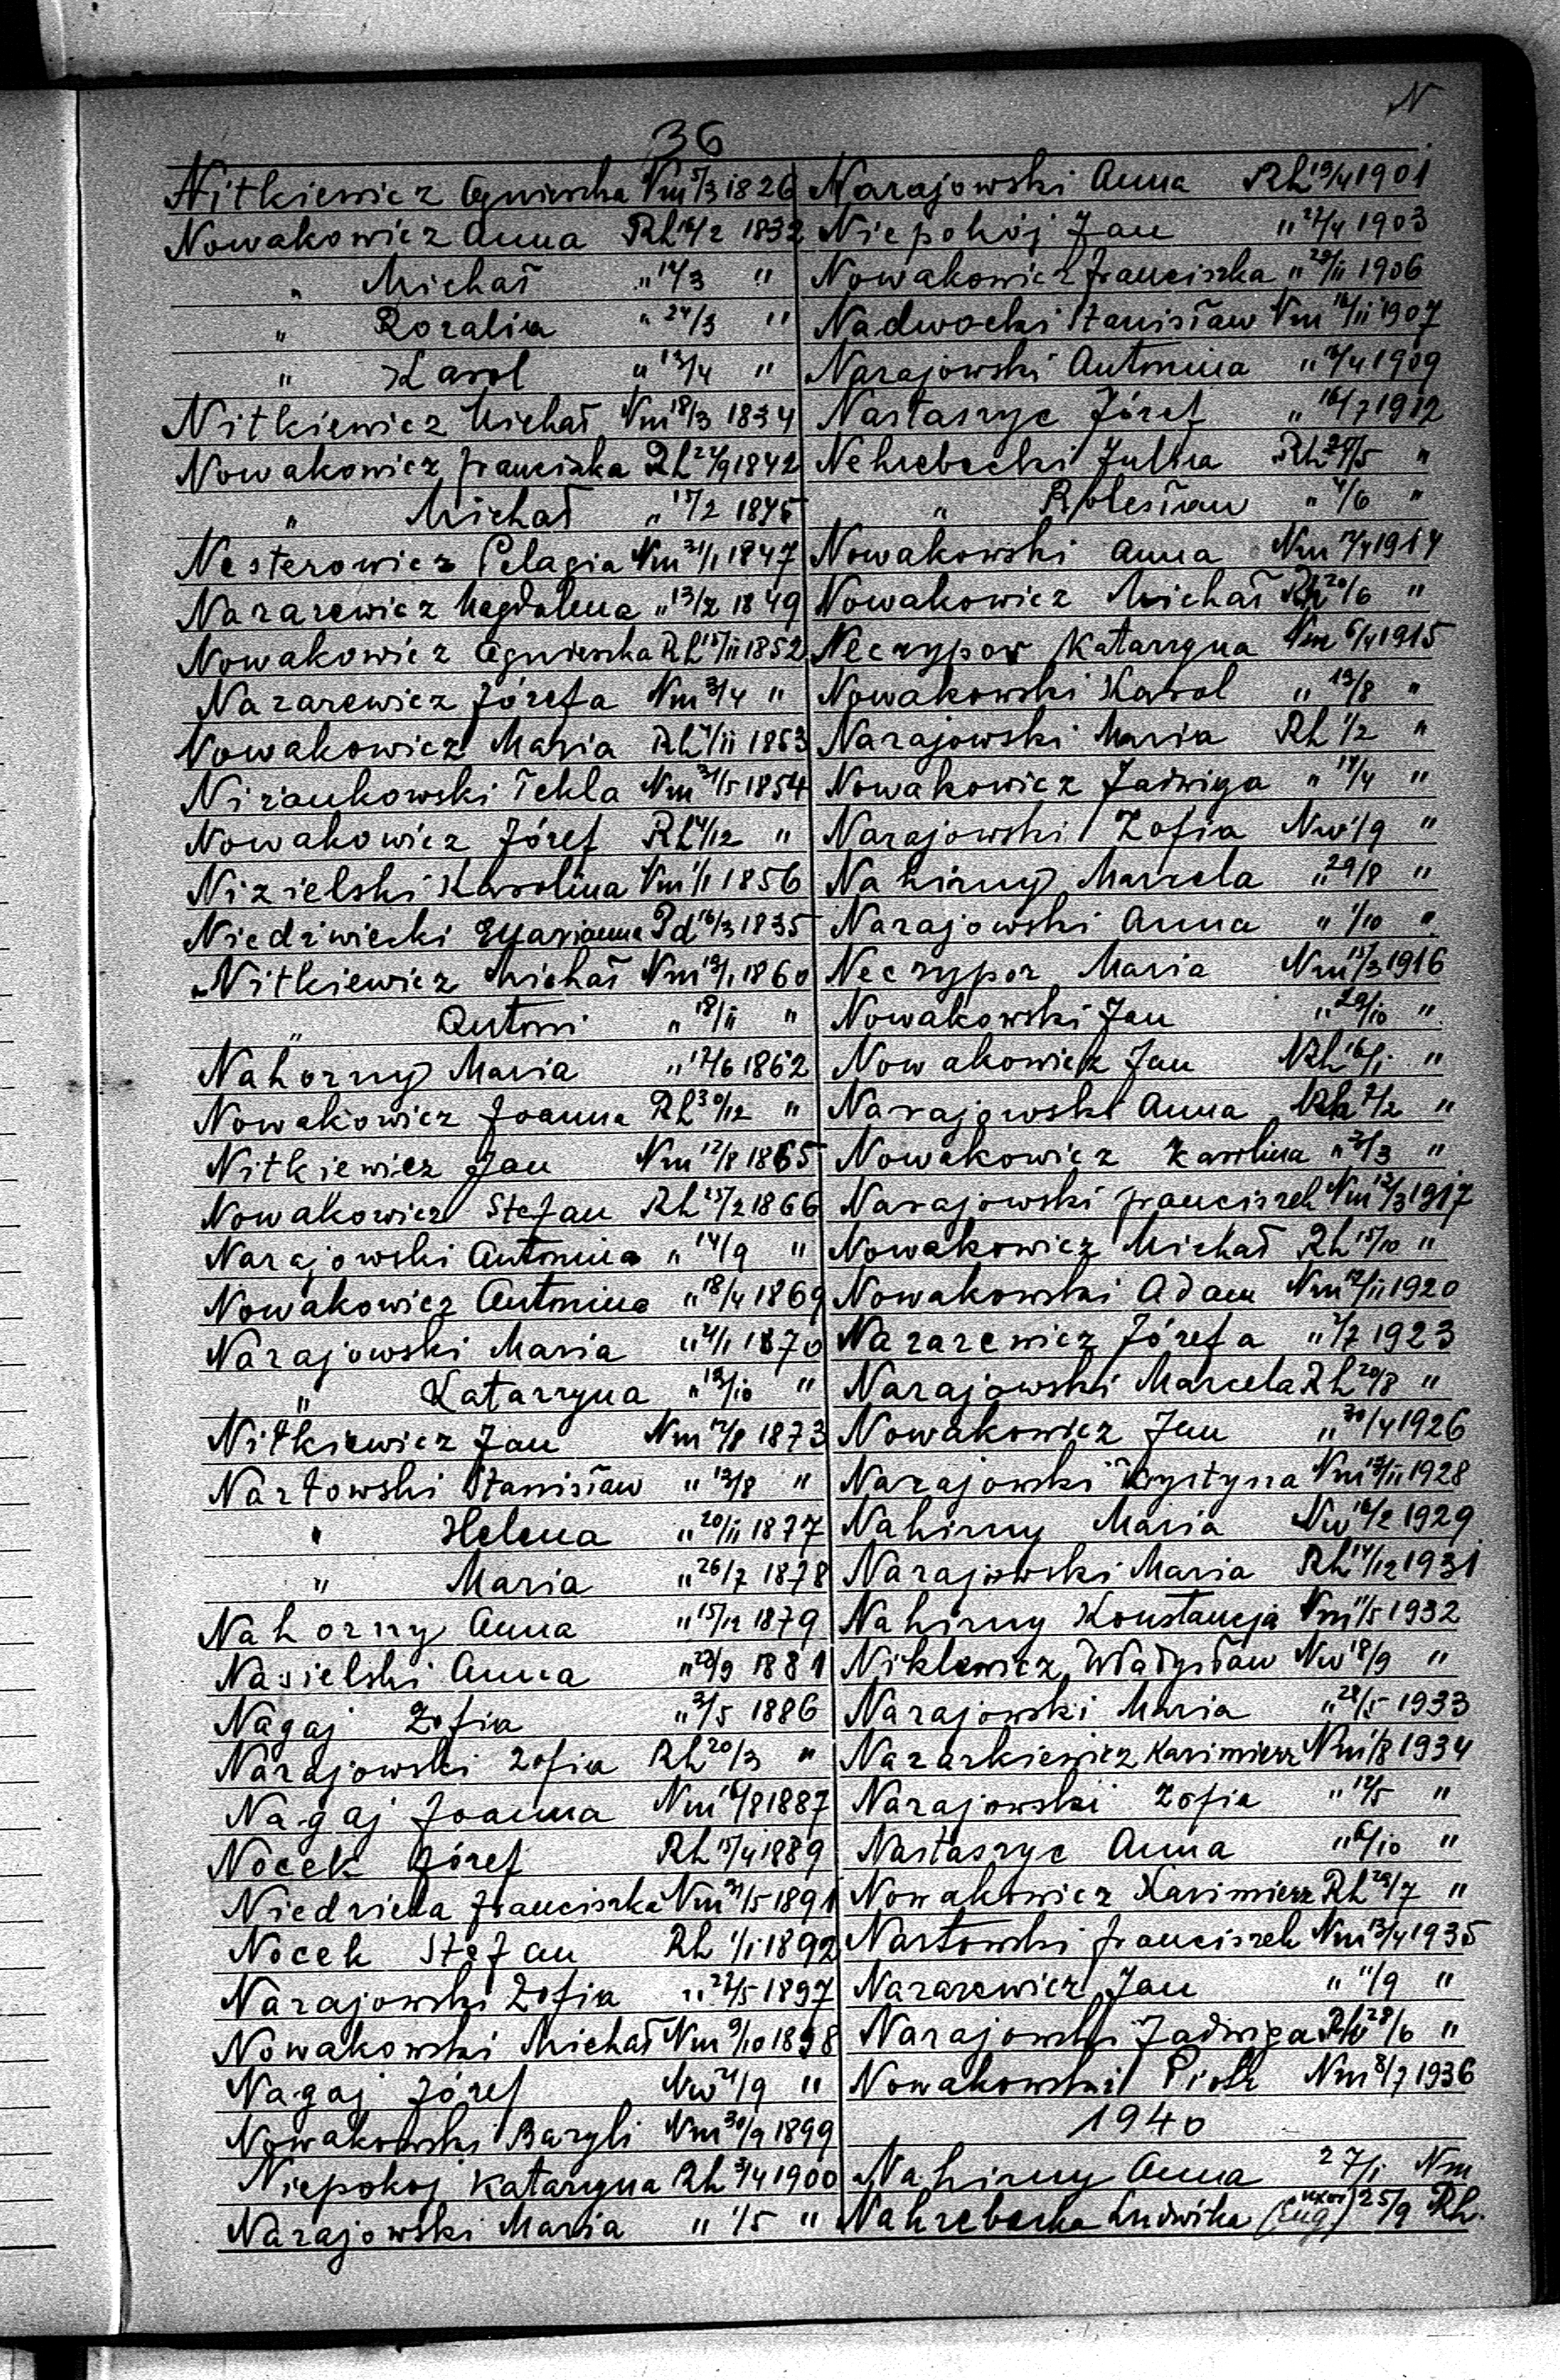 N
36
Nitkiewicz Agnieszka Nm 5/3 1826
Nowakowicz Anna Rh 16/2 1832
" Michał " 14/3 "
" Rozalia " 24/3 "
" Karol " 13/4 "
Nitkiewicz Michał Nm 18/3 1834
Nowakowicz Franciszka Rh 24/9 1842
" Michał " 15/2 1845
Nesterowicz Pelagia Nm 21/1 1847
Nazarewicz Magdalena " 13/2 1849
Nowakowicz Agnieszka Rh 15/11 1852
Nazarewicz Józefa Nm 3/4 "
Nowakowicz Maria Rh 4/11 1853
Niżankowski Tekla Nm 31/5 1854
Nowakowicz Józef Rh 4/12 "
Nizielski Karolina Nm 1/1 1856
Niedźwiecki Marianna Pd 16/3 1835
Nitkiewicz Michał Nm 19/1 1860
" Antoni " 18/11 "
Nahorny Maria " 17/6 1862
Nowakowicz Joanna Rh 30/12 "
Nitkiewicz Jan Nm 12/8 1865
Nowakowicz Stefan Rh 25/2 1866
Narajowski Antonina " 14/9 "
Nowakowicz Antonina " 18/4 1869
Narajowski Maria " 4/1 1870
" Katarzyna " 19/10 "
Nitkiewicz Jan Nm 12/8 1873
Nartowski Stanisław " 13/8 "
" Helena " 20/11 1877
" Maria " 26/7 1878
Nahorny Anna " 15/12 1879
Nasielski Anna " 29/9 1881
Nagaj Zofia " 3/5 1886
Narajowski Zofia Rh 20/3 "
Nagaj Joanna Nm 16/8 1887
Nocek Józef Rh 15/4 1889
Niedziela Franciszka Nm 31/5 1891
Nocek Stefan Rh 1/1 1892
Narajowski Zofia " 22/5 1897
Nowakowski Michał Nm 9/10 1898
Nagaj Józef Nw 21/9 "
Nowakowski Bazyli Nm 30/9 1899
Niepokoj Katarzyna Rh 3/4 1900
Narajowski Maria " 1/5 "
Narajowski Anna Rh 19/4 1901
Niepokój Jan " 27/4 1903
Nowakowicz Franciszka " 29/11 1906
Nadwocki Stanisław Nm 16/11 1907
Narajowski Antonina " 12/4 1909
Nastaszyc Józef " 16/7 1912
Nehrebecki Julia Rh 24/5 "
" Bolesław " 4/6 "
Nowakowski Anna Nm 14/4 1914
Nowakowicz Michał Rh 20/6 "
Neczypor Katarzyna Nm 6/4 1915
Nowakowski Karol " 13/8 "
Narajowski Maria Rh 1/2 "
Nowakowicz Jadwiga " 14/4 "
Narajowski Zofia Nw 1/9 "
Nahirny Marcela " 29/8 "
Narajowski Anna " 1/10 "
Neczypor Maria Nm 15/3 1916
Nowakowski Jan " 29/10 "
Nowakowicz Jan Rh 16/1 "
Narajowski Anna Rh 7/2 "
Nowakowicz Karolina " 2/3 "
Narajowski Franciszek Nm 12/3 1917
Nowakowicz Michał Rh 15/10 "
Nowakowski Adam Nm 12/11 1920
Nazarewicz Józefa " 2/7 1923
Narajowski Marcela Rh 20/8 "
Nowakowicz Jan " 30/4 1926
Narajowski Krystyna Nm 13/11 1928
Nahirny Maria Nw 16/2 1929
Narajowski Maria Rh 14/12 1931
Nahirny Konstancja Nm 11/5 1932
Niklewicz Władysław Nw 18/9 "
Narajowski Maria " 28/5 1933
Nazarkiewicz Kazimierz Nm 1/8 1934
Narajowski Zofia " 12/5 "
Nastaszyc Anna " 6/10 "
Nowakowicz Kazimierz Rh 29/7 "
Nartowski Franciszek Nm 13/4 1935
Nazarewicz Jan " 11/9 "
Narajowski Jadwiga Rh 28/6 "
Nowakowski Piotr Nm 8/7 1936
1940
Nahirny Anna 27/1 Nm
Nahrebecka Ludwika (uxor Eug) 25/9 Rh.